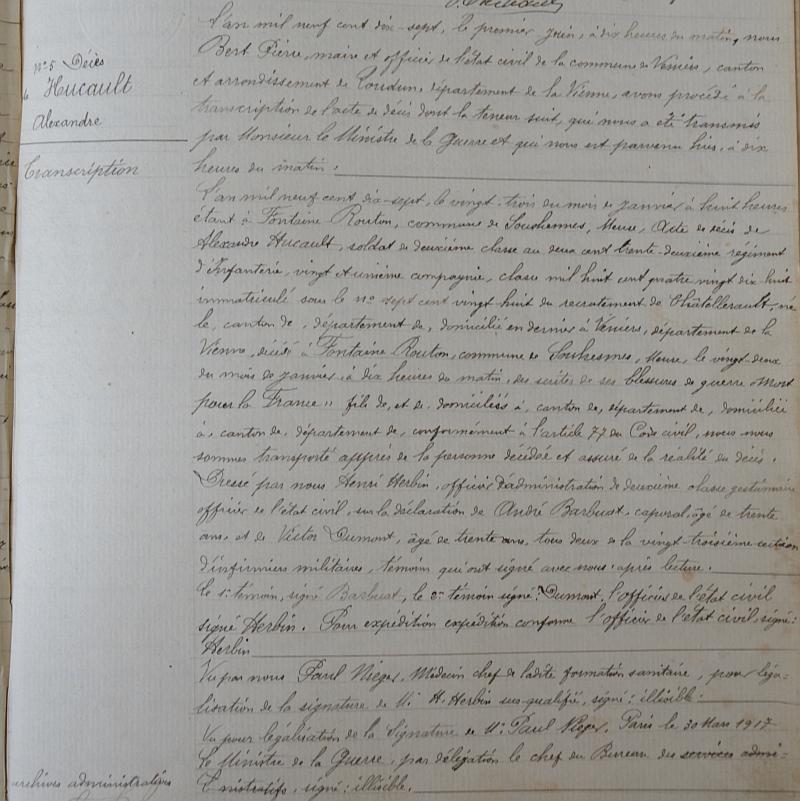 L'an mil neuf cent dix-sept, le premier juin, à dix heures du matin, nous
Bert Pierre, maire et officier de l'état civil de la commune de Véniers, canton
et arrondissement de Loudun, département de la Vienne, avons procédé à la
transcription de l'acte de décès dont la teneur suit, qui nous a été transmis
par Monsieur le Ministre de la Guerre et qui nous est parvenu hier, à dix
heures du matin.
No 5 Décès
de Hucault
Alexandre
Transcription
L'an mil neuf cent dix-sept, le vingt-trois du mois de janvier à huit heures
étant à Fontaine Routon, commune de Souhesmes, Meuse, Acte de décès de
Alexandre Hucault, soldat de deuxième classe au deux cent trente-deuxième régiment
d'Infanterie, vingt et unième compagnie, classe mil huit cent quatre vingt dix huit
immatriculé sous le no sept cent vingt huit du recrutement de Châtellerault, né
le, canton de, département de, domicilié en dernier à Véniers, département de la
Vienne, décédé à Fontaine Routon, commune de Souhesmes, Meuse, le vingt-deux
du mois de janvier à dix heures du matin, des suites de ses blessures de guerre "Mort
pour la France" fils de, et de, domiciliés à, canton de, département de, domicilié
à, canton de, département de, conformément à l'article 77 du Code civil, nous nous
sommes transporté apprès de la personne décédée et assuré de la réalité du décès.
Dressé par nous Henri Herbin, officier d'administration de deuxième classe gestionnaire
officier de l'état civil, sur la déclaration de André Barbuat, caporal, âgé de trente
ans, et de Victor Dumont, âgé de trente ans, tous deux de la vingt-troisième section
d'infirmiers militaires, témoins qui ont signé avec nous après lecture.
Le 1er témoin, signé Barbuat, le 2e témoin signé: Dumont, l'officier de l'état civil
signé Herbin. Pour expédition expédition conforme l'officier de l'état civil, signé:
Herbin
Vu par nous Paul Vieger, Médecin chef de ladite formation sanitaire, pour léga-
lisation de la signature de Mr H. Herbin sus-qualifié, signé: illisible.
Vu pour légalisation de la Signature de Mr Paul Vieger, Paris le 30 Mars 1917
Le Ministre de la Guerre, par délégation le chef du Bureau des services admi-
nistratifs, signé: illisible.
archives administratives